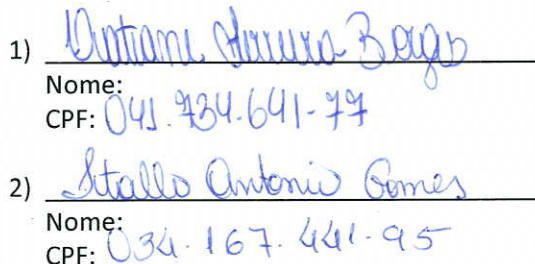 1) Tatiani Ferreira Borges
Nome:
CPF: 041.734.641-77
2) Itallo Antonio Gomes
Nome:
CPF: 034.167.441-95